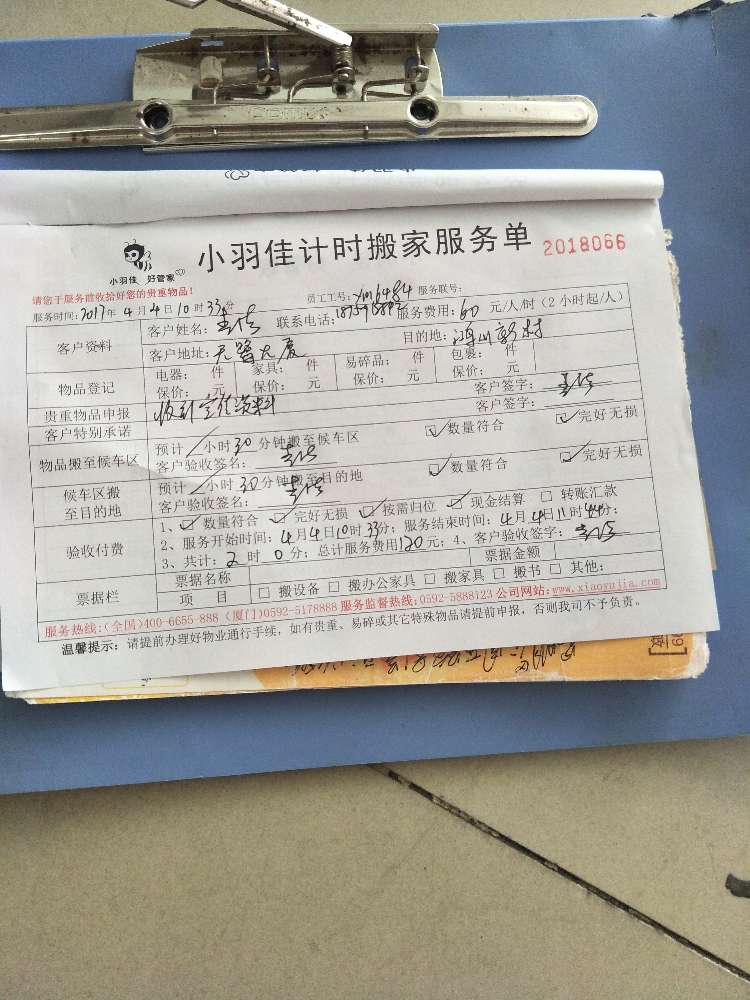 小羽佳计时搬家服务单 2018066
小羽佳 好管家
请您于服务前收拾好您的贵重物品!
服务时间:2017年4月4日10时33分 员工工号:xm6484 服务联号:
客户资料 客户姓名: 联系电话: 服务费用:60元/人/时(2小时起/人)
客户地址:无 大厦 目的地: 新村
物品登记 电器: 件 家具: 件 易碎品: 件 包裹: 件
保价: 元 保价: 元 保价: 元 保价: 元
贵重物品申报 客户签字:
客户特别承诺 收到 资料 客户签字:
物品搬至候车区 预计 小时30分钟搬至候车区 ☑数量符合 ☑完好无损
客户验收签名:
候车区搬至目的地 预计 小时30分钟搬至目的地 ☑数量符合 ☑完好无损
客户验收签名:
验收付费 1、☑数量符合 ☑完好无损 ☑按需归位 ☑现金结算 □转账汇款
2、服务开始时间:4月4日10时33分;服务结束时间:4月4日11时44分;
3、共计:2时0分;总计服务费用120元;4、客户验收签字:
票据栏 票据名称 票据金额
项 目 □搬设备 □搬办公家具 □搬家具 □搬书 □其他:
服务热线:(全国)400-6655-888 (厦门)0592-5178888 服务监督热线:0592-5888123 公司网站:www.xiaoyujia.com
温馨提示:请提前办理好物业通行手续,如有贵重、易碎或其它特殊物品请提前申报,否则我司不予负责。